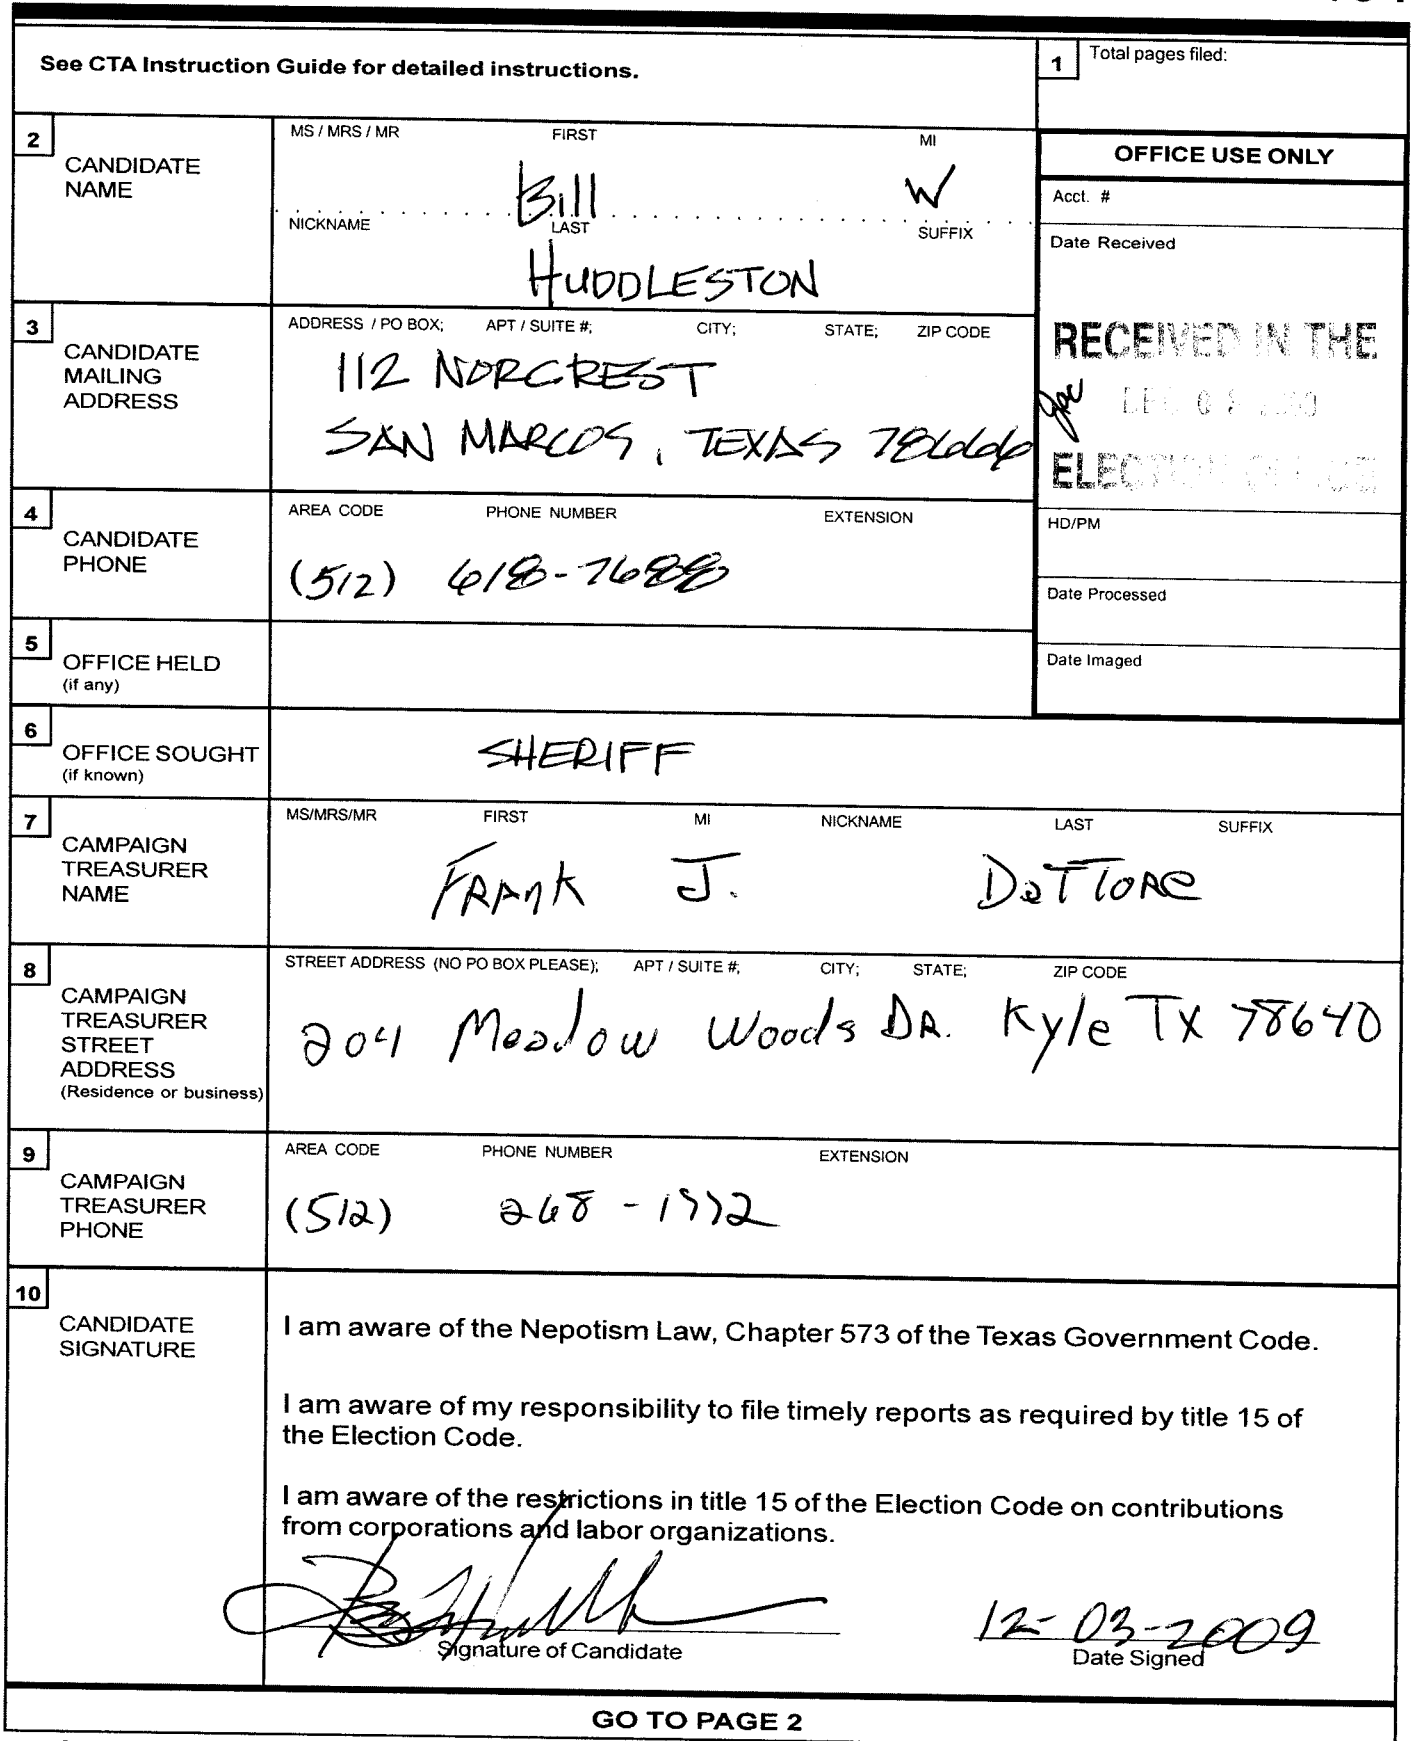 See CTA Instruction Guide for detailed instructions.
1 Total pages filed:
2 CANDIDATE NAME
MS / MRS / MR FIRST MI
Bill W
NICKNAME LAST SUFFIX
HUDDLESTON
OFFICE USE ONLY
Acct. #
Date Received
RECEIVED IN THE
ELECTION OFFICE
HD/PM
Date Processed
Date Imaged
3 CANDIDATE MAILING ADDRESS
ADDRESS / PO BOX; APT / SUITE #; CITY; STATE; ZIP CODE
112 NORCREST
SAN MARCOS, TEXAS 78666
4 CANDIDATE PHONE
AREA CODE PHONE NUMBER EXTENSION
(512) 618-7688
5 OFFICE HELD
(if any)
6 OFFICE SOUGHT
(if known)
SHERIFF
7 CAMPAIGN TREASURER NAME
MS/MRS/MR FIRST MI NICKNAME LAST SUFFIX
FRANK J. DeTTORE
8 CAMPAIGN TREASURER STREET ADDRESS
(Residence or business)
STREET ADDRESS (NO PO BOX PLEASE); APT / SUITE #; CITY; STATE; ZIP CODE
204 Meadow Woods DR. Kyle TX 78640
9 CAMPAIGN TREASURER PHONE
AREA CODE PHONE NUMBER EXTENSION
(512) 268-1992
10 CANDIDATE SIGNATURE
I am aware of the Nepotism Law, Chapter 573 of the Texas Government Code.
I am aware of my responsibility to file timely reports as required by title 15 of
the Election Code.
I am aware of the restrictions in title 15 of the Election Code on contributions
from corporations and labor organizations.
12-03-2009
Signature of Candidate Date Signed
GO TO PAGE 2